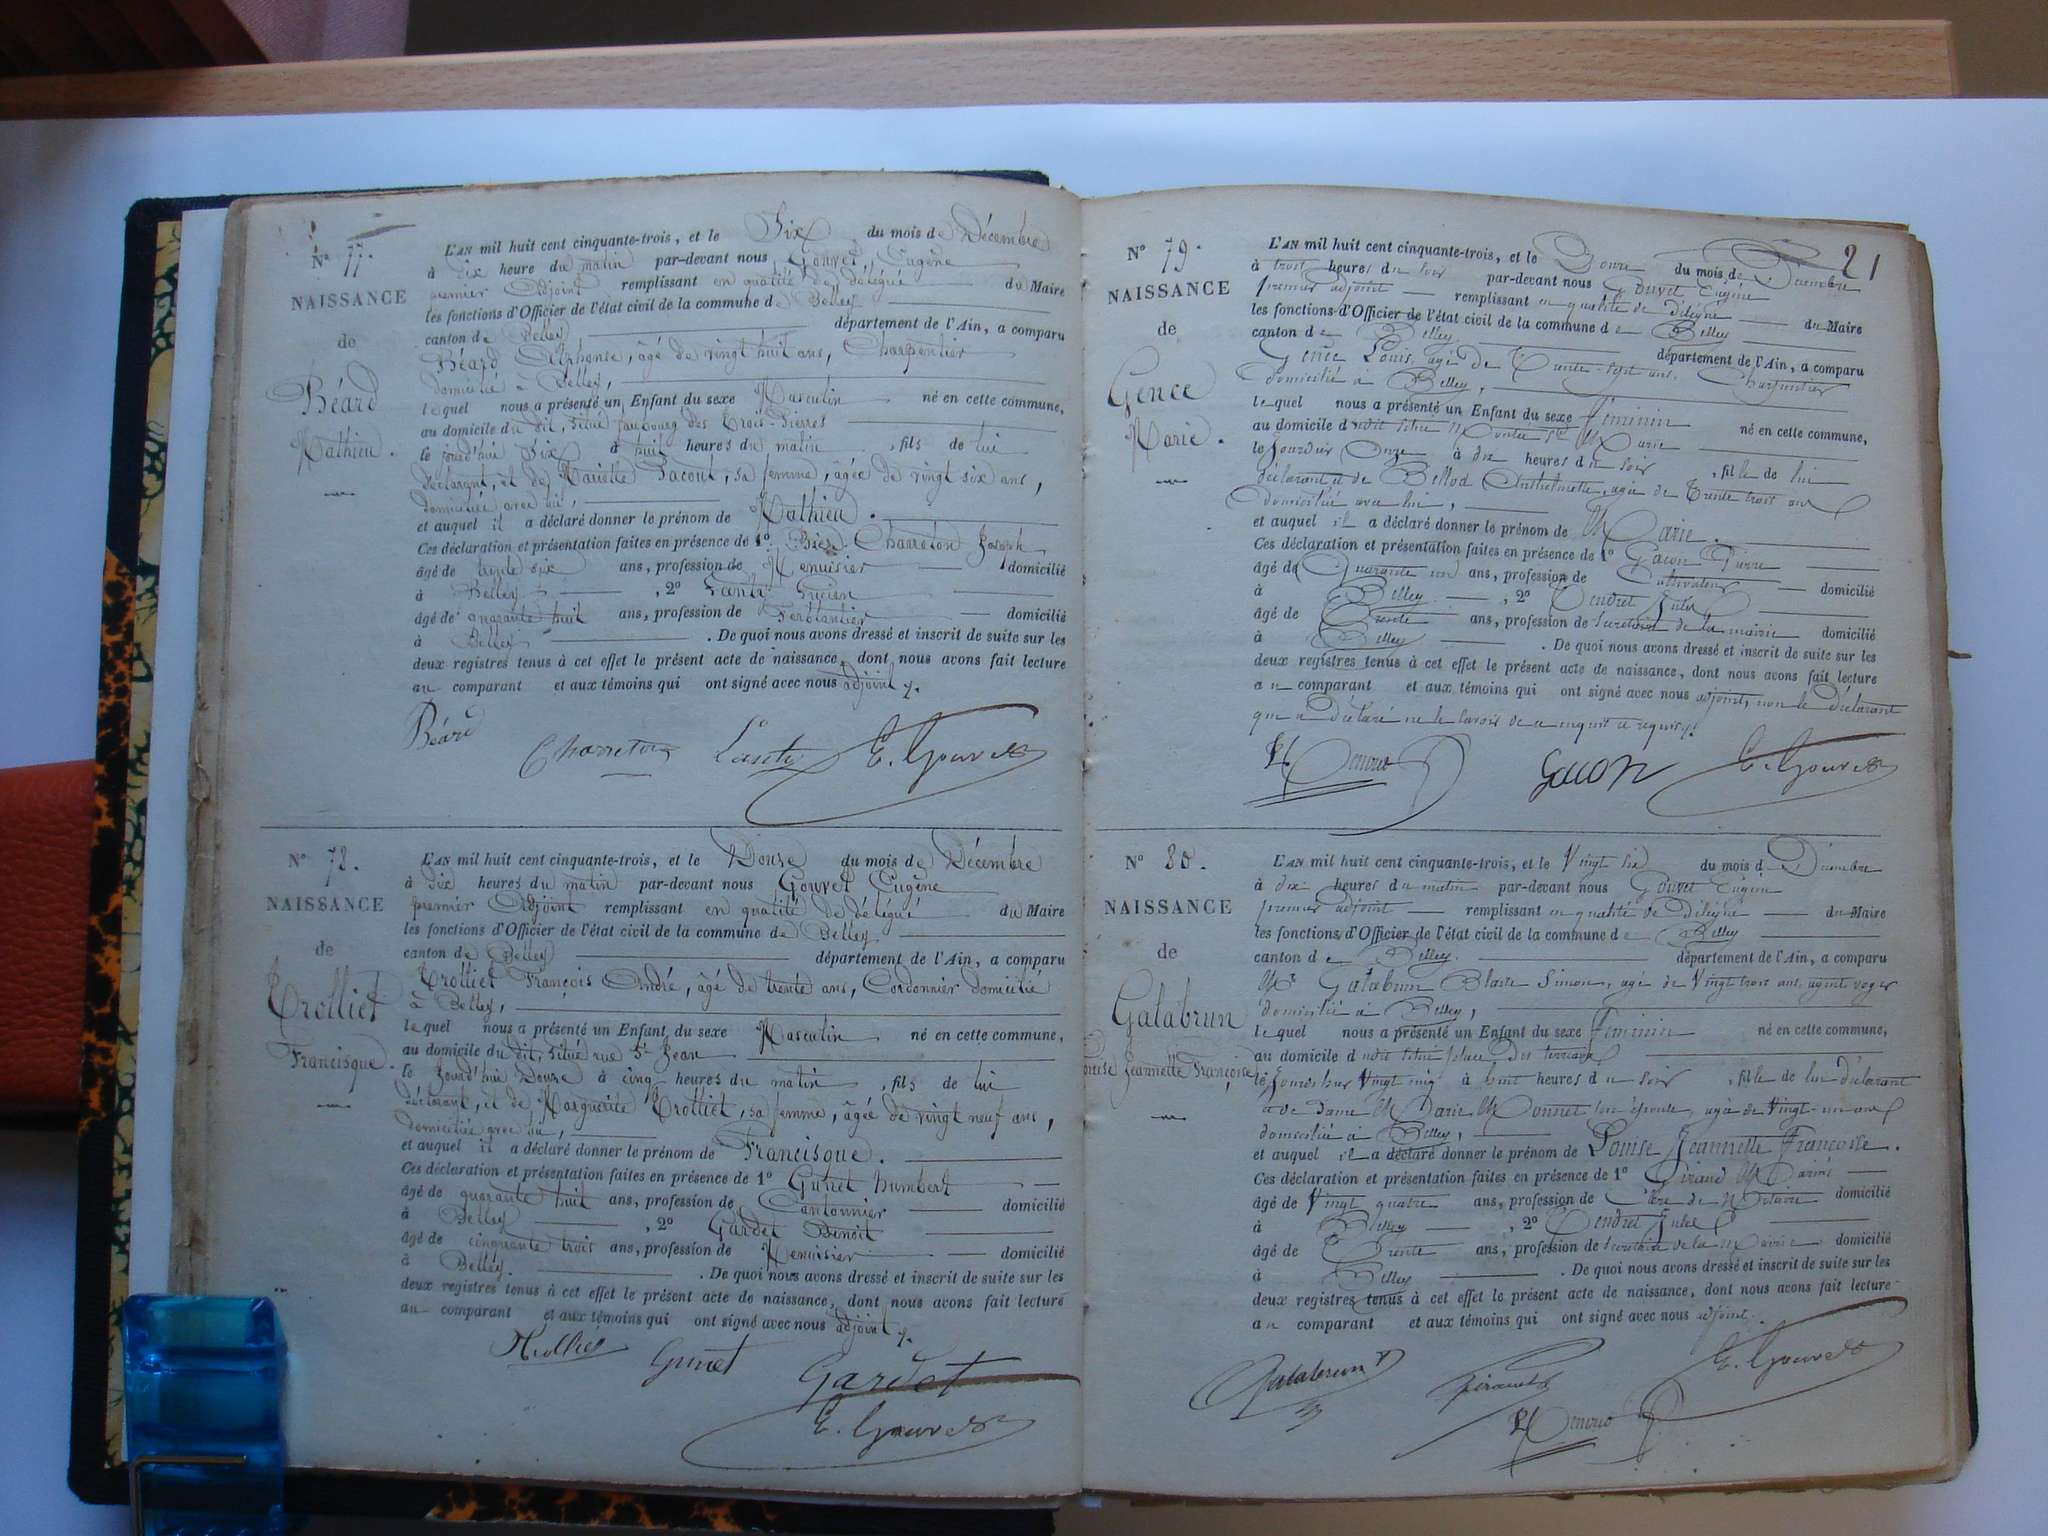 N° 77.
NAISSANCE
de
Béard
Mathieu.
L'AN mil huit cent cinquante-trois, et le Six du mois de Décembre
à dix heure du matin par-devant nous Gouvet, Eugène
premier Adjoint remplissant en qualité de délégué du Maire
les fonctions d'Officier de l'état civil de la commune de Belley
canton de Belley département de l'Ain, a comparu
Béard Alphonse, âgé de vingt huit ans, Charpentier
domicilié à Belley,
lequel nous a présenté un Enfant du sexe Masculin né en cette commune,
au domicile du dit, situé faubourg des Trois-Pierres
le jourd'hui Six à huit heures du matin, fils de lui
déclarant, et de Mariette Pacout, sa femme, âgée de vingt six ans,
domiciliée avec lui,
et auquel il a déclaré donner le prénom de Mathieu.
Ces déclaration et présentation faites en présence de 1° Charreton Joseph
âgé de trente six ans, profession de Menuisier domicilié
à Belley, 2° Lucien
âgé de quarante huit ans, profession de Ferblantier domicilié
à Belley. De quoi nous avons dressé et inscrit de suite sur les
deux registres tenus à cet effet le présent acte de naissance, dont nous avons fait lecture
au comparant et aux témoins qui ont signé avec nous adjoint
Béard
Charreton E. Gouvet
N° 78.
NAISSANCE
de
Trolliet
Francisque.
L'AN mil huit cent cinquante-trois, et le Douze du mois de Décembre
à dix heures du matin par-devant nous Gouvet Eugène
premier Adjoint remplissant en qualité de délégué du Maire
les fonctions d'Officier de l'état civil de la commune de Belley
canton de Belley département de l'Ain, a comparu
Trolliet François André, âgé de trente ans, Cordonnier domicilié
à Belley,
lequel nous a présenté un Enfant du sexe Masculin né en cette commune,
au domicile du dit, situé rue St Jean
le jourd'hui Douze à cinq heures du matin, fils de lui
déclarant, et de Marguerite Trolliet, sa femme, âgée de vingt neuf ans,
domiciliée avec lui,
et auquel il a déclaré donner le prénom de Francisque.
Ces déclaration et présentation faites en présence de 1° Guinet humbert
âgé de quarante huit ans, profession de Cantonnier domicilié
à Belley, 2° Gardet Benoit
âgé de cinquante trois ans, profession de Menuisier domicilié
à Belley. De quoi nous avons dressé et inscrit de suite sur les
deux registres tenus à cet effet le présent acte de naissance, dont nous avons fait lecture
au comparant et aux témoins qui ont signé avec nous adjoint
Trolliet Guinet Gardet
E. Gouvet
21
N° 79.
NAISSANCE
de
Gence
Marie.
L'AN mil huit cent cinquante-trois, et le Douze du mois de Décembre
à trois heures du soir par-devant nous Gouvet Eugène
premier adjoint remplissant en qualité de délégué du Maire
les fonctions d'Officier de l'état civil de la commune de Belley
canton de Belley département de l'Ain, a comparu
Gence Louis, agé de Trente-sept ans, Charpentier
domicilié à Belley,
lequel nous a présenté un Enfant du sexe féminin né en cette commune,
au domicile du dit situé Montée Ste Marie
le jourd'hier Onze à dix heures du soir, fille de lui
déclarant et de Bellod Anthelmette, agée de Trente trois ans
domiciliée avec lui,
et auquel il a déclaré donner le prénom de Marie.
Ces déclaration et présentation faites en présence de 1° Gacon Pierre
âgé de Quarante un ans, profession de Cultivateur domicilié
à Belley, 2° Tendret Jules
âgé de Trente ans, profession de secretaire de la mairie domicilié
à Belley. De quoi nous avons dressé et inscrit de suite sur les
deux registres tenus à cet effet le présent acte de naissance, dont nous avons fait lecture
au comparant et aux témoins qui ont signé avec nous adjoint, non le déclarant
qui a déclaré ne le savoir de ce enquis et requis.
Gacon E. Gouvet
N° 80.
NAISSANCE
de
Galabrun
Louise Jeannette Françoise
L'AN mil huit cent cinquante-trois, et le Vingt six du mois de Décembre
à dix heures du matin par-devant nous Gouvet Eugène
premier adjoint remplissant en qualité de délégué du Maire
les fonctions d'Officier de l'état civil de la commune de Belley
canton de Belley département de l'Ain, a comparu
Mr Galabrun Blaise Simon, agé de Vingt trois ans, agent voyer
domicilié à Belley,
lequel nous a présenté un Enfant du sexe féminin né en cette commune,
au domicile du dit situé place des terreaux
le jourd'hier Vingt cinq à huit heures du soir, fille de lui déclarant
et de dame Marie Monnet son épouse, agée de Vingt-un ans
domiciliée à Belley,
et auquel il a déclaré donner le prénom de Louise Jeannette Françoise.
Ces déclaration et présentation faites en présence de 1° Giraud Marius
âgé de Vingt quatre ans, profession de Clerc de Notaire domicilié
à Belley, 2° Tendret Jules
âgé de Trente ans, profession de secrétaire de la Mairie domicilié
à Belley. De quoi nous avons dressé et inscrit de suite sur les
deux registres tenus à cet effet le présent acte de naissance, dont nous avons fait lecture
au comparant et aux témoins qui ont signé avec nous adjoint.
Galabrun Giraud E. Gouvet